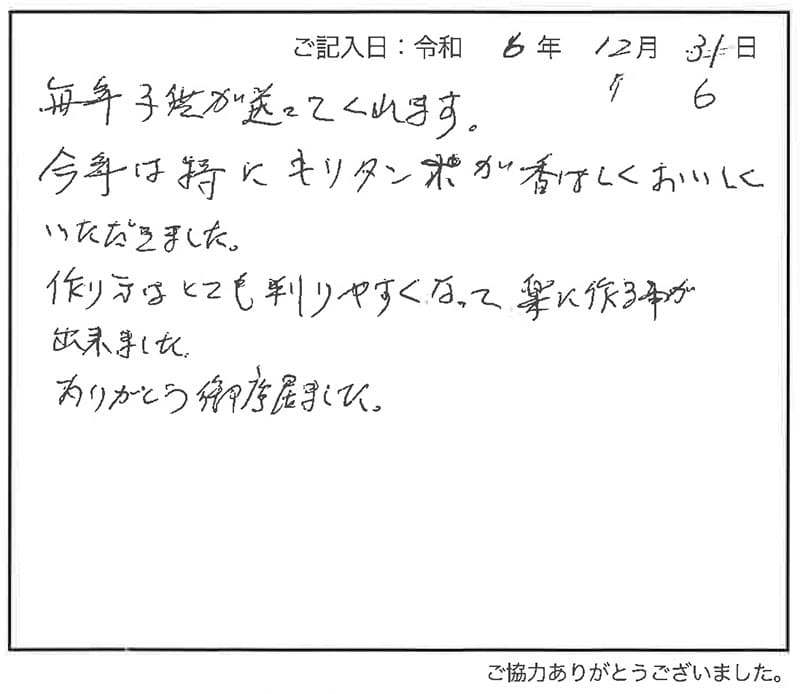 ご記入日：令和 6年 12月 31日
6
毎年子供が送ってくれます。
今年は特にキリタンポが香ばしくおいしく
いただきました。
作り方はとても判りやすくなって楽に作る事が
出来ました。
ありがとう御座居ました。
ご協力ありがとうございました。